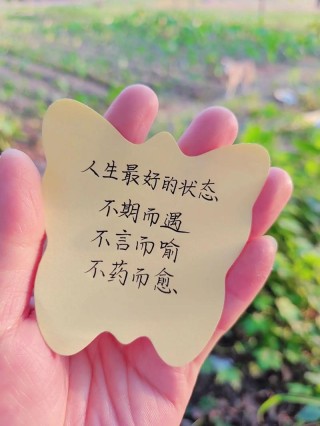 人生最好的状态
不期而遇
不言而喻
不药而愈